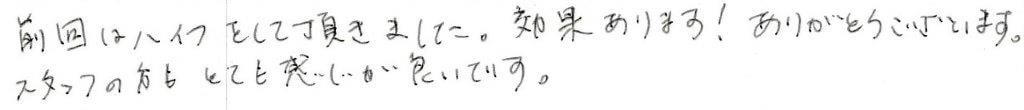 前回はハイフをして頂きました。効果あります！ありがとうございます。
スタッフの方もとても感じが良いです。